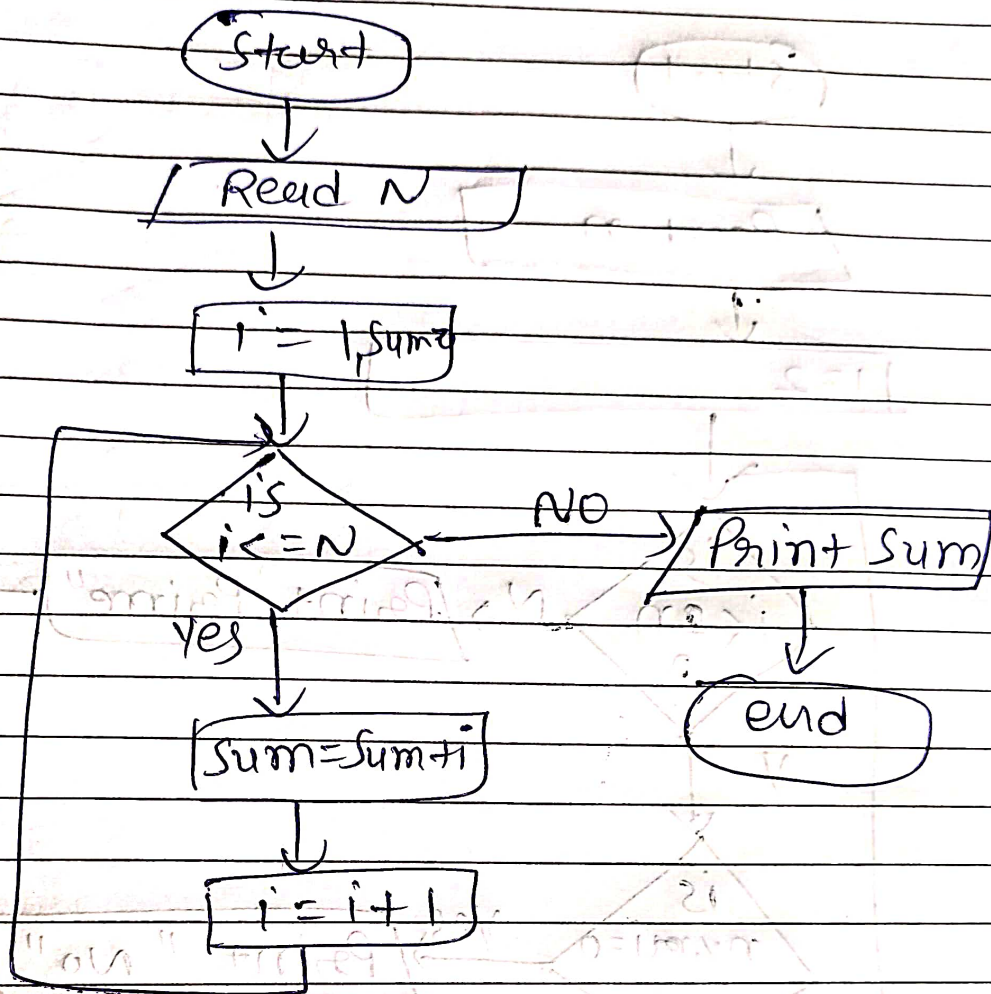 Start
Read N
i = 1, sum=
is
i <= N
NO
Print Sum
end
Yes
Sum=Sum+i
i = i + 1